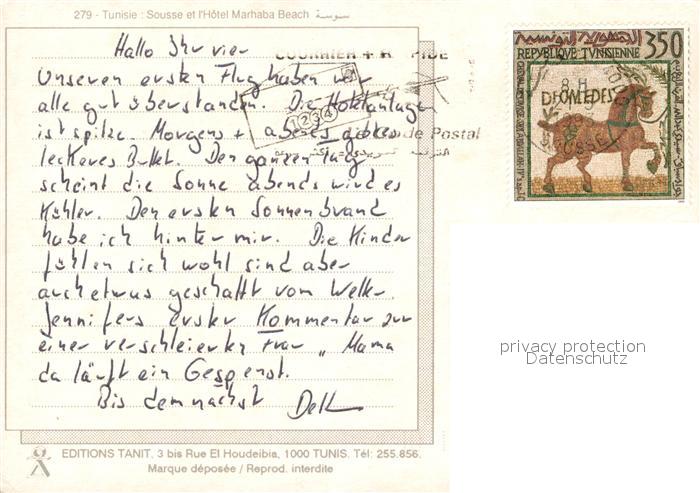 279 - Tunisie : Sousse et l'Hôtel Marhaba Beach سوسة
Hallo Ihr vier
Unseren ersten Flug haben wir
alle gut überstanden. Die Hotelanlage
ist spitze. Morgens + abends gibt es
leckeres Buffet. Den ganzen Tag
scheint die Sonne abends wird es
Kühler. Den ersten Sonnenbrand
habe ich hinter mir. Die Kinder
fühlen sich wohl sind aber
auch etwas geschafft vom Wetter.
Jennifers erster Kommentar zur
einer verschleierten Frau „ Mama
da läuft ein Gespenst.
Bis demnächst
COURRIER + R PIDE
1234
de Postal
REPUBLIQUE TUNISIENNE
350
8 H
DIOMEDES
SOUSSE
privacy protection
Datenschutz
EDITIONS TANIT. 3 bis Rue El Houdeibia, 1000 TUNIS. Tél: 255.856.
Marque déposée / Reprod. interdite